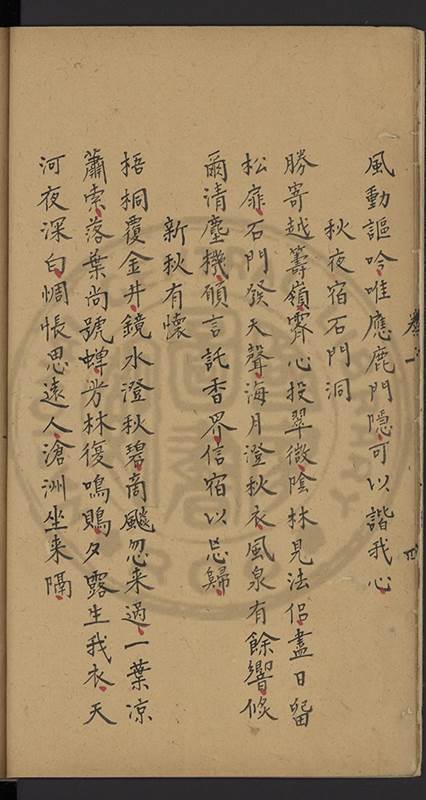 風動謳吟唯應鹿門隱可以諧我心
秋夜宿石門洞
勝寄越籌嶺霽心投翠微陰林見法侶盡日留
松扉石門發天聲海月澄秋衣風泉有餘響倏
爾清塵機願言託香界信宿以忘歸
新秋有懷
梧桐覆金井鏡水澄秋碧商飈忽来過一葉凉
蕭索落葉尚號蟬芳林復鳴鵙夕露生我衣天
河夜深白惆悵思遠人滄洲坐来隔
卷一
四